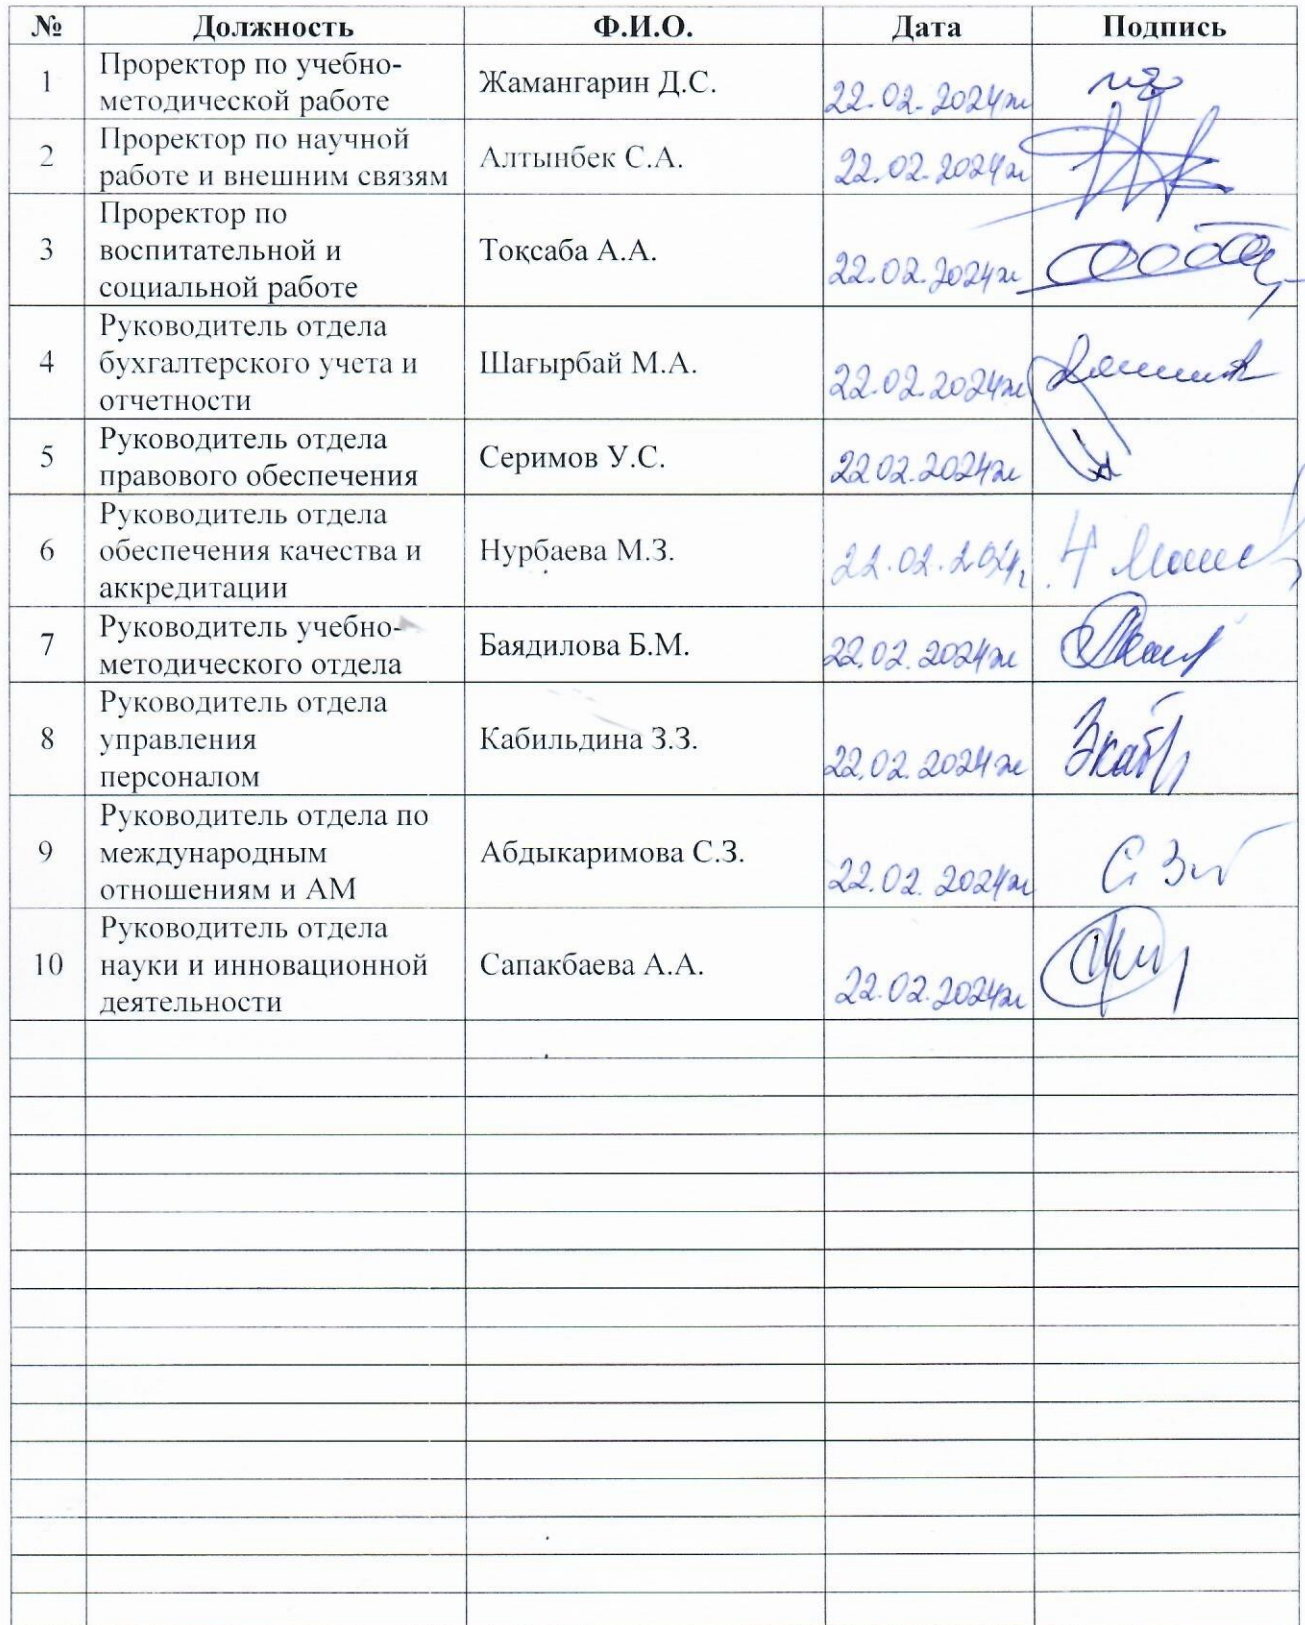 № Должность Ф.И.О. Дата Подпись
1 Проректор по учебно-
методической работе Жамангарин Д.С. 22.02.2024ж
2 Проректор по научной
работе и внешним связям Алтынбек С.А. 22.02.2024ж
3 Проректор по
воспитательной и
социальной работе Тоқсаба А.А. 22.02.2024ж
4 Руководитель отдела
бухгалтерского учета и
отчетности Шағырбай М.А. 22.02.2024ж
5 Руководитель отдела
правового обеспечения Серимов У.С. 22.02.2024ж
6 Руководитель отдела
обеспечения качества и
аккредитации Нурбаева М.З. 22.02.2024г
7 Руководитель учебно-
методического отдела Баядилова Б.М. 22.02.2024ж
8 Руководитель отдела
управления
персоналом Кабильдина З.З. 22.02.2024ж
9 Руководитель отдела по
международным
отношениям и АМ Абдыкаримова С.З. 22.02.2024ж
10 Руководитель отдела
науки и инновационной
деятельности Сапакбаева А.А. 22.02.2024ж